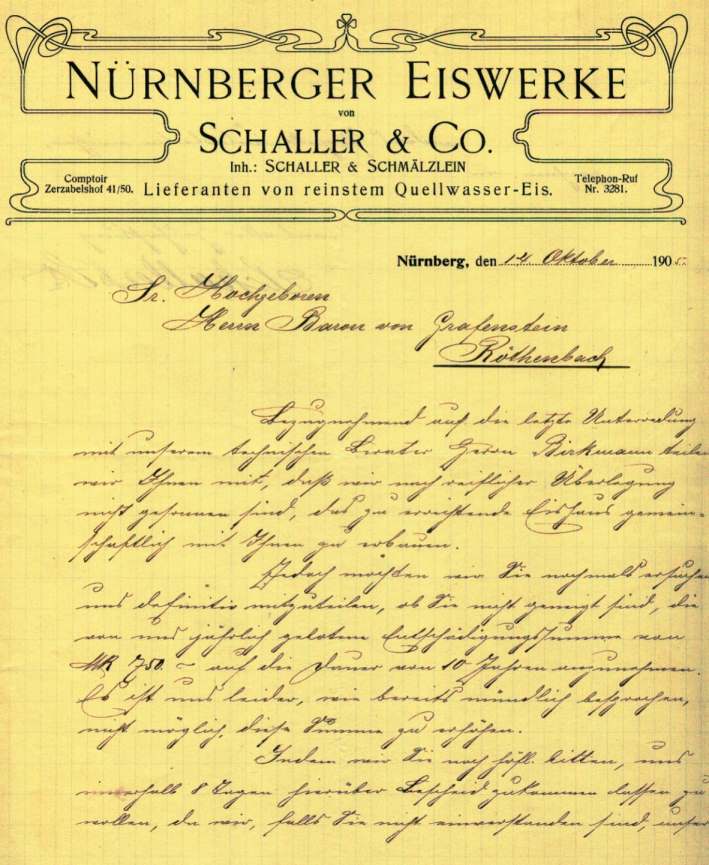 NÜRNBERGER EISWERKE
von
SCHALLER & CO.
Inh.: SCHALLER & SCHMÄLZLEIN
Comptoir
Zerzabelshof 41/50.
Lieferanten von reinstem Quellwasser-Eis.
Telephon-Ruf
Nr. 3281.
Nürnberg, den 14 Oktober 190
Sr. Hochgeboren
Herrn Baron von Grafenstein
Röthenbach
Bezugnehmend auf die letzte Unterredung
mit unserem technischen Berater Herrn Birkmann teilen
wir Ihnen mit, daß wir nach reiflicher Überlegung
nicht gesonnen sind, das zu errichtende Eishaus gemein-
schaftlich mit Ihnen zu erbauen.
Jedoch möchten wir Sie nochmals ersuchen
uns definitiv mitzuteilen, ob Sie nicht geneigt sind, die
von uns jährlich gebotene Entschädigungssumme von
Mk 750.– auf die Dauer von 10 Jahren anzunehmen.
Es ist uns leider, wie bereits mündlich besprochen,
nicht möglich, diese Summe zu erhöhen.
Indem wir Sie noch höfl. bitten, uns
innerhalb 8 Tagen hierüber Bescheid zukommen lassen zu
wollen, da wir, falls Sie nicht einverstanden sind, unser